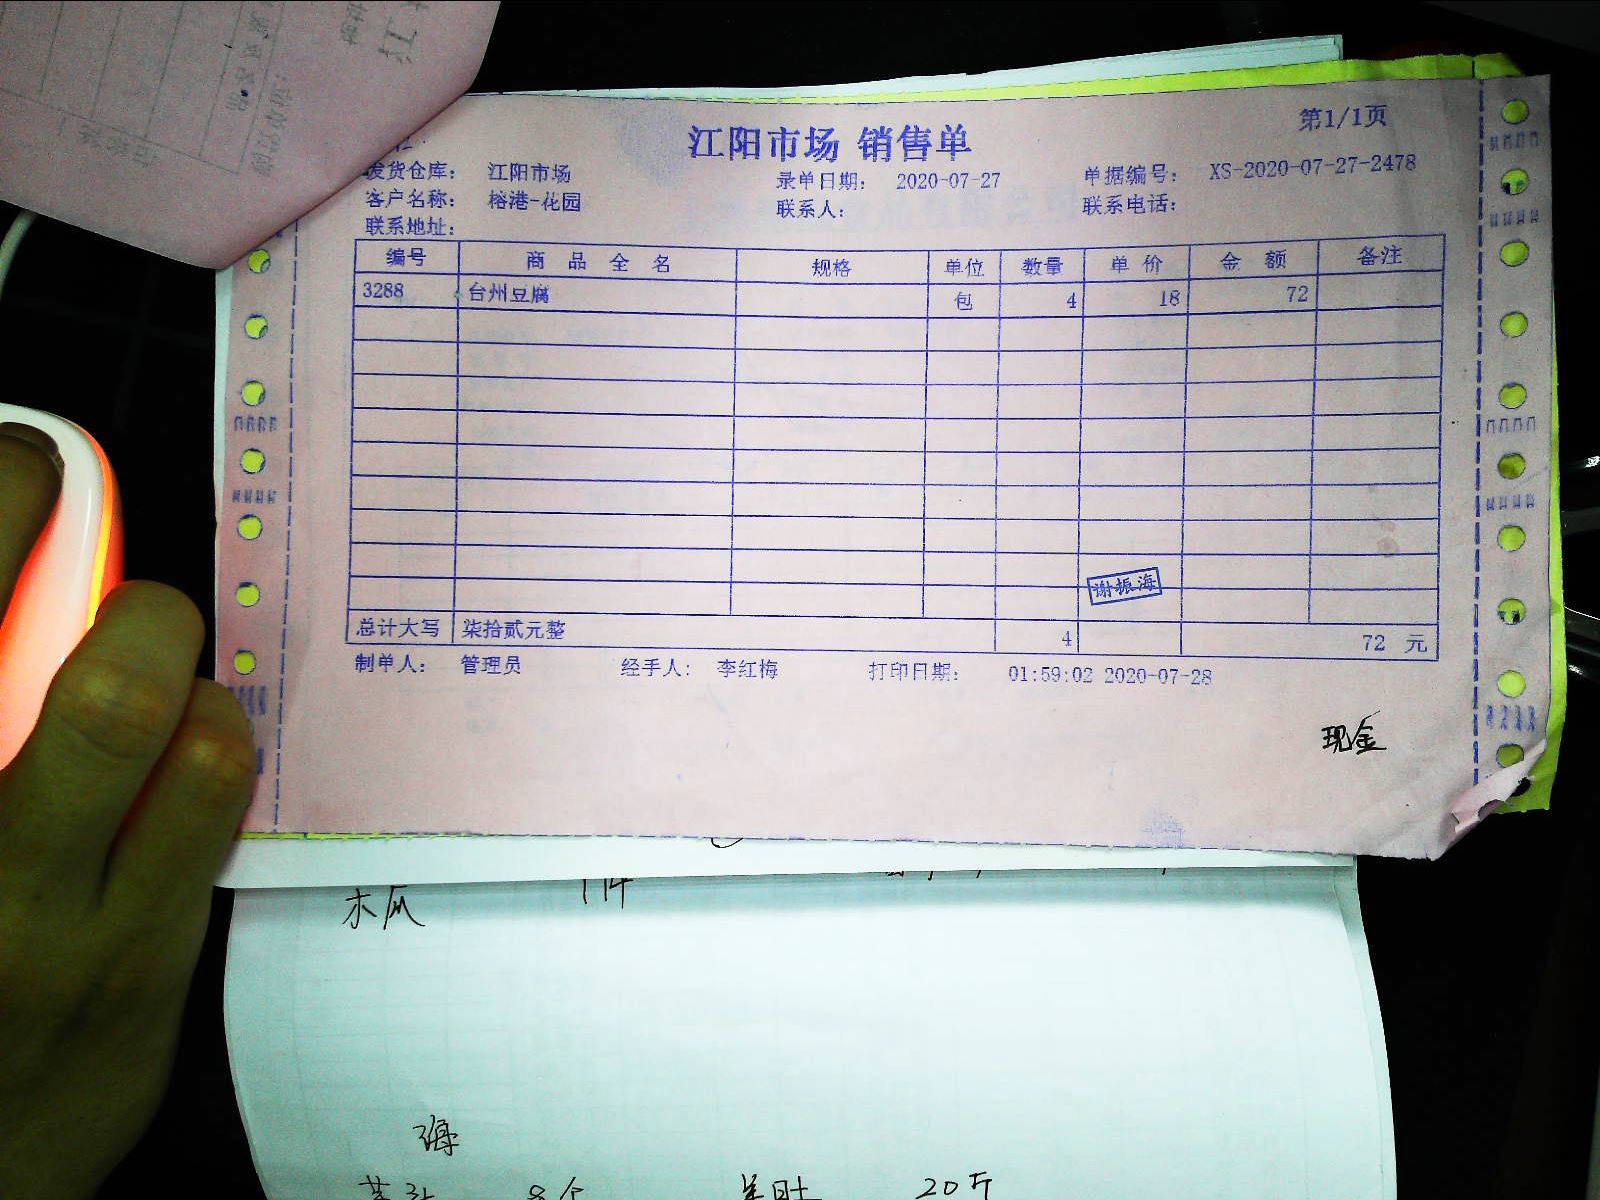 第1/1页
江阳市场 销售单
发货仓库： 江阳市场 录单日期： 2020-07-27 单据编号： XS-2020-07-27-2478
客户名称： 榕港-花园 联系人： 联系电话：
联系地址：
编号 商品全名 规格 单位 数量 单价 金额 备注
3288 台州豆腐 包 4 18 72
谢振海
总计大写 柒拾贰元整 4 72 元
制单人： 管理员 经手人： 李红梅 打印日期： 01:59:02 2020-07-28
现金
木瓜
海
8个 20斤